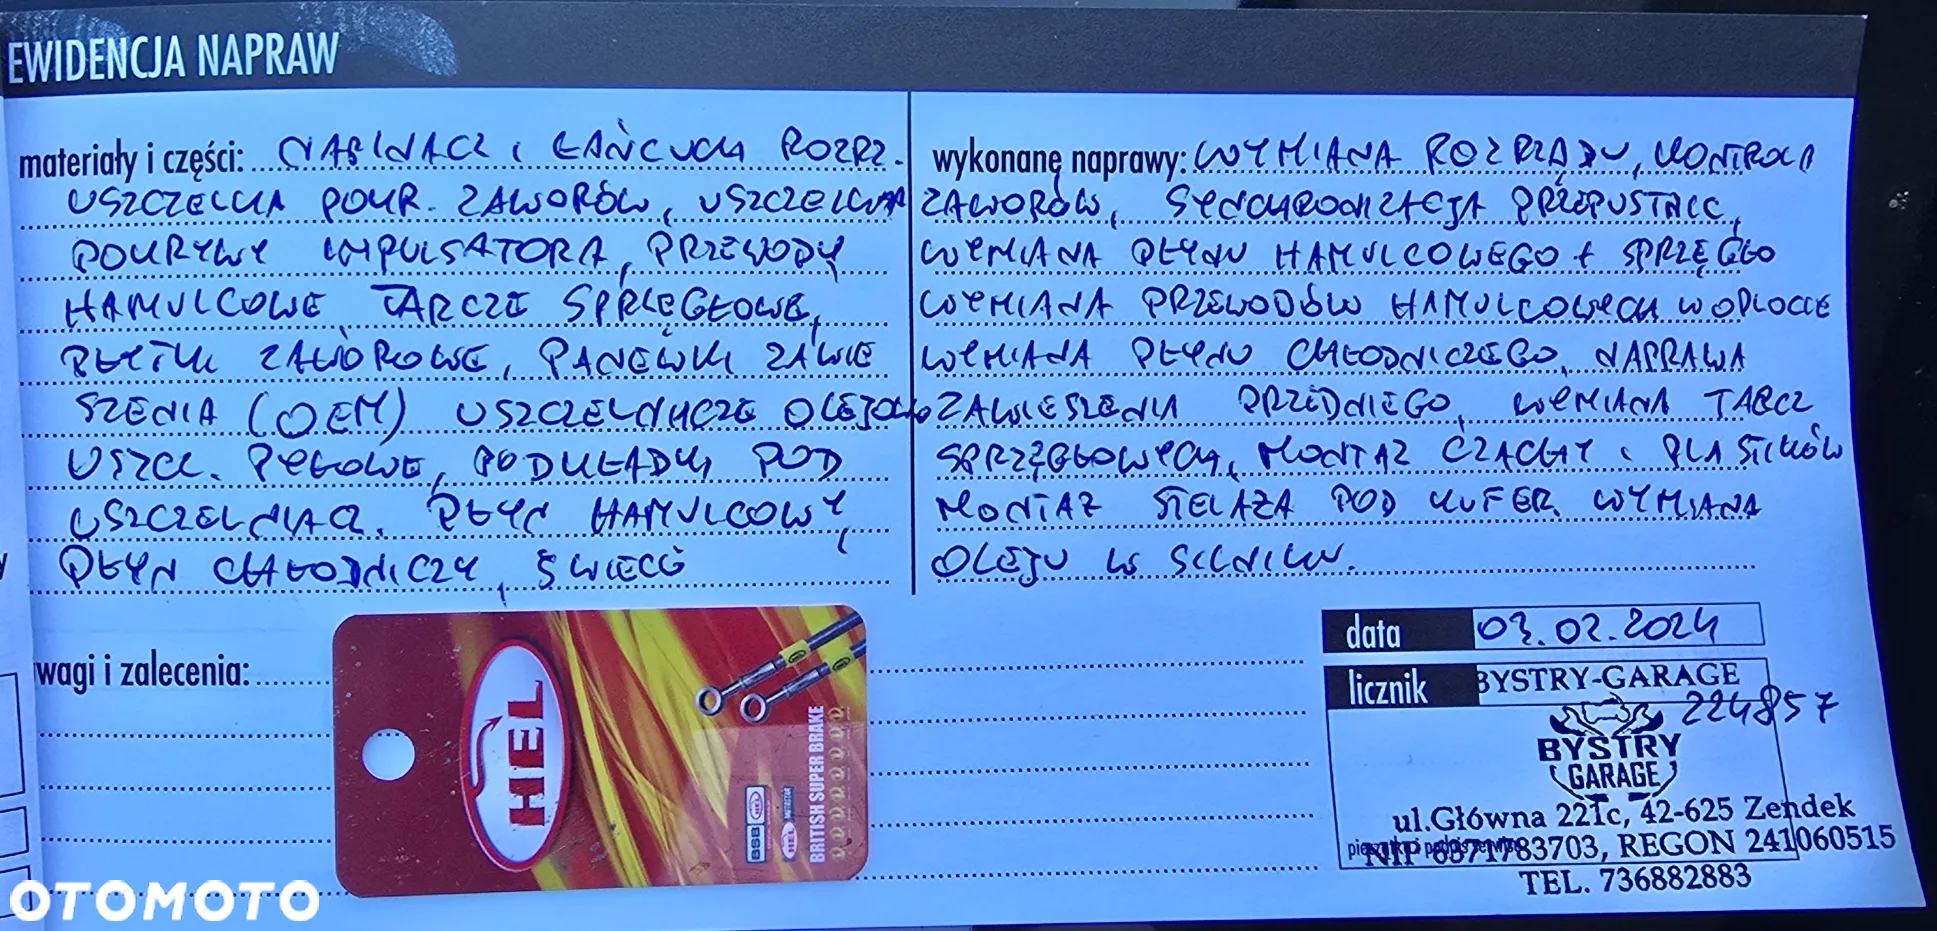 EWIDENCJA NAPRAW
materiały i części: NAPINACZ I ŁAŃCUCH ROZRZ.
USZCZELKA POKR. ZAWORÓW, USZCZELKA
POKRYWY IMPULSATORA, PRZEWODY
HAMULCOWE TARCZE SPRZĘGŁOWE,
PŁYTKI ZAWOROWE, PANEWKI ZAWIE
SZENIA (OEM) USZCZELNIACZE OLEJOWE
USZCZ. PYŁOWE, PODKŁADKI POD
USZCZELNIACZ. PŁYN HAMULCOWY,
PŁYN CHŁODNICZY, ŚWIECE
wykonanę naprawy: WYMIANA ROZRZĄDU, KONTROLA
ZAWORÓW, SYNCHRONIZACJA PRZEPUSTNIC,
WYMIANA PŁYNU HAMULCOWEGO + SPRZĘGŁO
WYMIANA PRZEWODÓW HAMULCOWYCH W OPLOCIE
WYMIANA PŁYNU CHŁODNICZEGO, NAPRAWA
ZAWIESZENIA PRZEDNIEGO, WYMIANA TARCZ
SPRZĘGŁOWYCH, MONTAŻ CZACHY I PLASTIKÓW
MONTAŻ STELAŻA POD KUFER. WYMIANA
OLEJU W SILNIKU.
wagi i zalecenia:
data 03.02.2024
licznik BYSTRY-GARAGE
224857
BYSTRY
GARAGE
ul.Główna 221c, 42-625 Zendek
NIP 6371783703, REGON 241060515
TEL. 736882883
HEL
BRITISH SUPER BRAKE
BSB
HEL
OTOMOTO